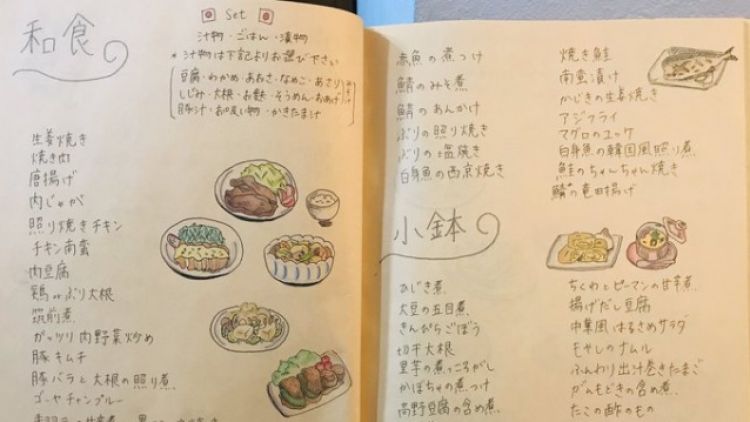 和食
Set
汁物・ごはん・漬物
*汁物は下記よりお選び下さい
豆腐・わかめ・あおさ・なめこ・あさり
しじみ・大根・お麩・そうめん・おあげ
豚汁・お吸い物・かきたま汁
みそ汁
生姜焼き
焼き肉
唐揚げ
肉じゃが
照り焼きチキン
チキン南蛮
肉豆腐
鶏のぶり大根
筑前煮
ガッツリ肉野菜炒め
豚キムチ
豚バラと大根の照り煮
ゴーヤチャンプルー
赤魚の煮つけ
鯖のみそ煮
鯖のあんかけ
ぶりの照り焼き
ぶりの塩焼き
白身魚の西京焼き
焼き鮭
南蛮漬け
かじきの生姜焼き
アジフライ
マグロのユッケ
白身魚の韓国風照り煮
鮭のちゃんちゃん焼き
鯖の竜田揚げ
小鉢
ひじき煮
大豆の五目煮
きんぴらごぼう
切干大根
里芋の煮っころがし
かぼちゃの煮つけ
高野豆腐の含め煮
ちくわとピーマンの甘辛煮
揚げだし豆腐
中華風はるさめサラダ
もやしのナムル
ふんわり出汁巻きたまご
がんもどきの含め煮
たこの酢のもの